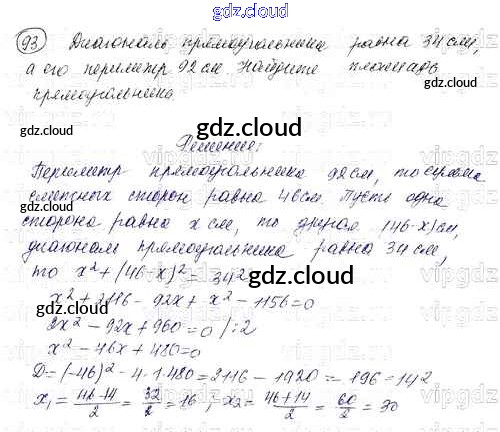 gdz.cloud
93) Диагональ прямоугольника равна 34 см,
а его периметр 92 см. Найдите площадь
прямоугольника.
gdz.cloud gdz.cloud
gdz.cloud
Решение:
Периметр прямоугольника 92 см, то сумма
смежных сторон равна 46 см. Пусть одна
сторона равна x см, то другая (46-x) см,
диагональ прямоугольника равна 34 см,
то x² + (46-x)² = 34²
gdz.cloud gdz.cloud
x² + 2116 - 92x + x² - 1156 = 0
2x² - 92x + 960 = 0 /:2
x² - 46x + 480 = 0
D = (-46)² - 4·1·480 = 2116 - 1920 = 196 = 14²
x₁ = (46-14)/2 = 32/2 = 16 ; x₂ = (46+14)/2 = 60/2 = 30